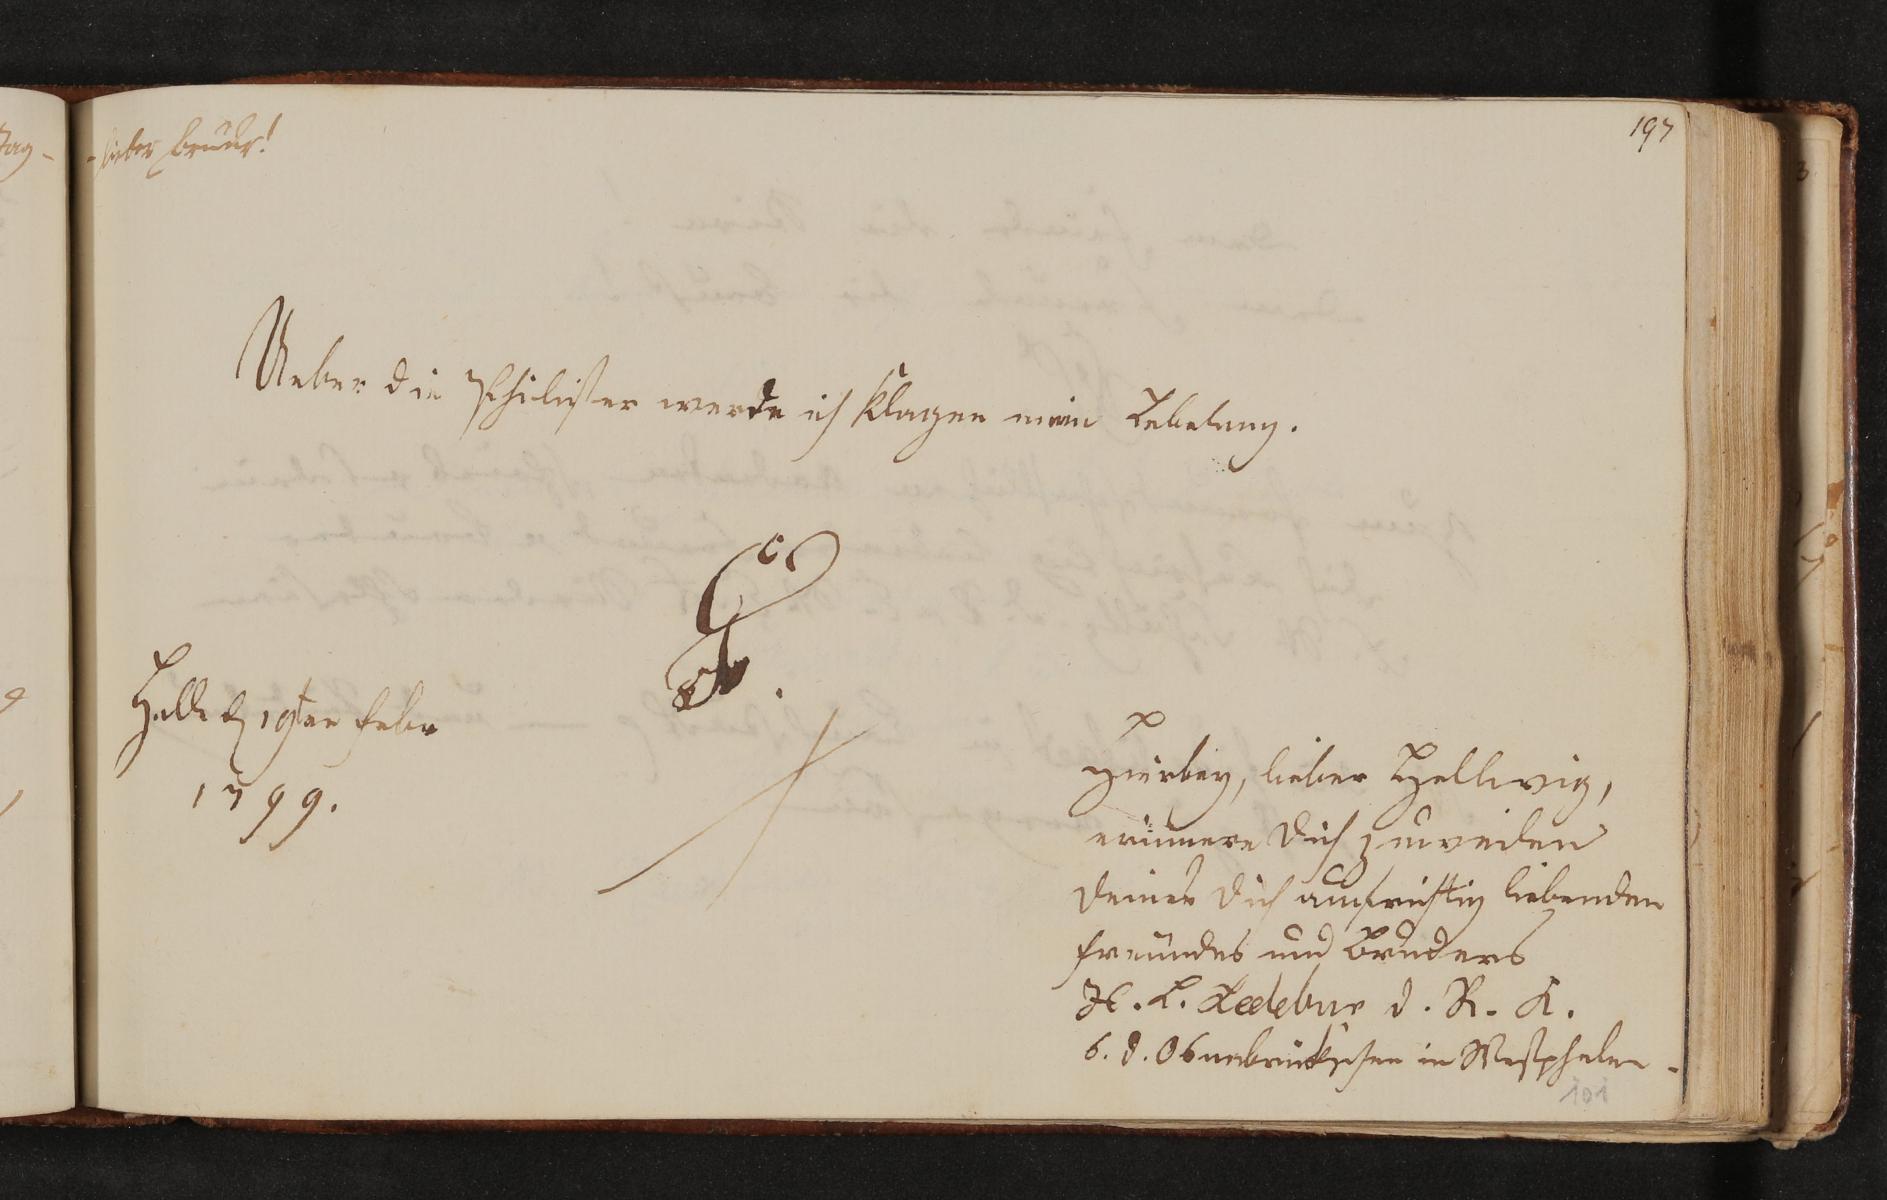 - lieber Bruder!
197
Ueber die Philister werde ich Klagen mein Lebelang.
Halle d 19ten Febr
1799.
Hierbey, lieber Hellwig,
erinnere Dich zuweilen
Deines Dich aufrichtig liebenden
Freundes und Bruders
H. L. Ledebur d. R. K.
a. d. Osnabrückschen in Westphalen.
101